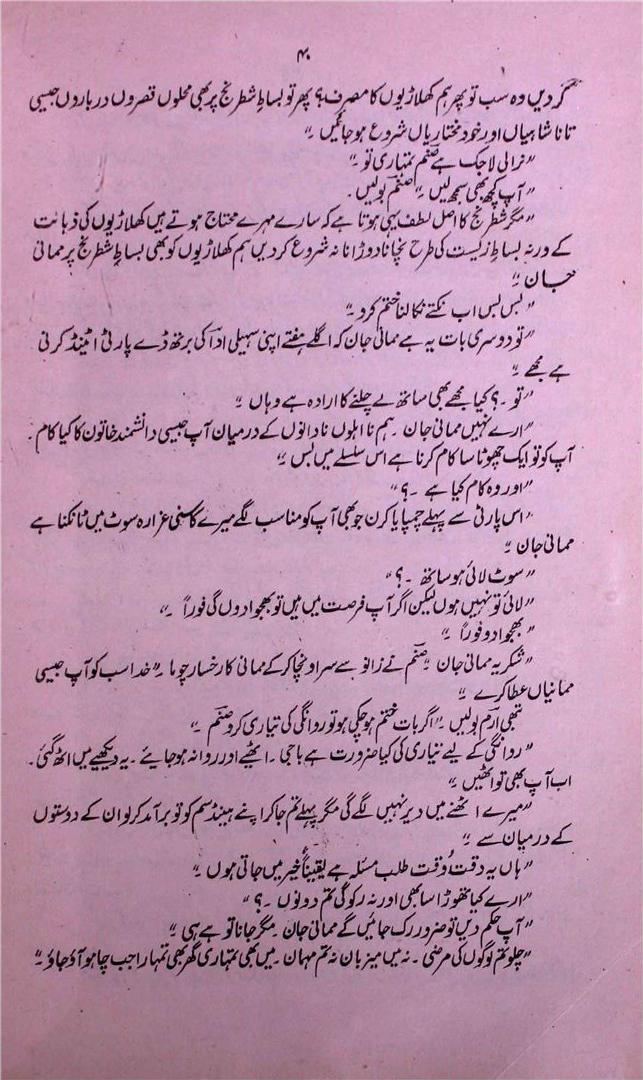 ۴۰
گر دیں وہ سب تو پھر ہم کھلاڑیوں کا مصرف؟ پھر تو بساطِ شطرنج پر بھی محلوں قصروں درباروں جیسی
تانا شاہیاں اور خود مختاریاں شروع ہو جائیں ۔"
"نرالی لاجک ہے صنم تمہاری تو ۔"
"آپ کچھ بھی سمجھ لیں ۔" صنم بولیں ۔
"مگر شطرنج کا اصل لطف یہی ہوتا ہے کہ سارے مہرے محتاج ہوتے ہیں کھلاڑیوں کی ذہانت
کے ورنہ بساطِ زیست کی طرح نچانا دوڑانا نہ شروع کر دیں ہم کھلاڑیوں کو بھی بساطِ شطرنج پر ممانی
جان ۔"
"بس بس اب نکتے نکالنا ختم کرو ۔"
"تو دوسری بات یہ ہے ممانی جان کہ اگلے ہفتے اپنی سہیلی ادا کی برتھ ڈے پارٹی اٹینڈ کرنی
ہے مجھے ۔"
"تو ۔؟ کیا مجھے بھی ساتھ لے چلنے کا ارادہ ہے وہاں ۔"
"ارے نہیں ممانی جان ۔ ہم نااہلوں نادانوں کے درمیان آپ جیسی دانشمند خاتون کا کیا کام ۔
آپ کو تو ایک چھوٹا سا کام کرنا ہے اس سلسلے میں بس ۔"
"اور وہ کام کیا ہے ۔؟"
"اس پارٹی سے پہلے چمپا یا کرن جو بھی آپ کو مناسب لگے میرے کاسنی غرارہ سوٹ میں ٹانکنا ہے
ممانی جان ۔"
"سوٹ لائی ہو ساتھ ۔؟"
"لائی تو نہیں ہوں لیکن اگر آپ فرصت میں ہیں تو بھجوا دوں گی فوراً ۔"
"بھجوا دو فوراً ۔"
"شکریہ ممانی جان ۔" صنم نے زانو سے سر اونچا کر کے ممانی کا رخسار چوما ۔ "خدا سب کو آپ جیسی
ممانیاں عطا کرے ۔"
تبھی ارم بولیں ۔ "اگر بات ختم ہو چکی ہو تو روانگی کی تیاری کرو صنم ۔"
"روانگی کے لیے تیاری کی کیا ضرورت ہے باجی ۔ اٹھیے اور روانہ ہو جائیے ۔ یہ دیکھیے میں اٹھ گئی ۔
اب آپ بھی تو اٹھیں ۔"
"میرے اٹھنے میں دیر نہیں لگے گی مگر پہلے تم جا کر اپنے ہینڈسم کو تو برآمد کر لو ان کے دوستوں
کے درمیان سے ۔"
"ہاں یہ دقت وُوقت طلب مسئلہ ہے یقیناً خیر میں جاتی ہوں ۔"
"ارے کیا تھوڑا سا بھی اور نہ رکو گی تم دونوں ۔؟"
"آپ حکم دیں تو ضرور رک جائیں گے ممانی جان ۔ مگر جانا تو ہے ہی ۔"
"چلو تم لوگوں کی مرضی ۔ نہ میں میزبان نہ تم مہمان ۔ میں بھی تمہاری گھر بھی تمہارا جب چاہو آؤ جاؤ ۔"